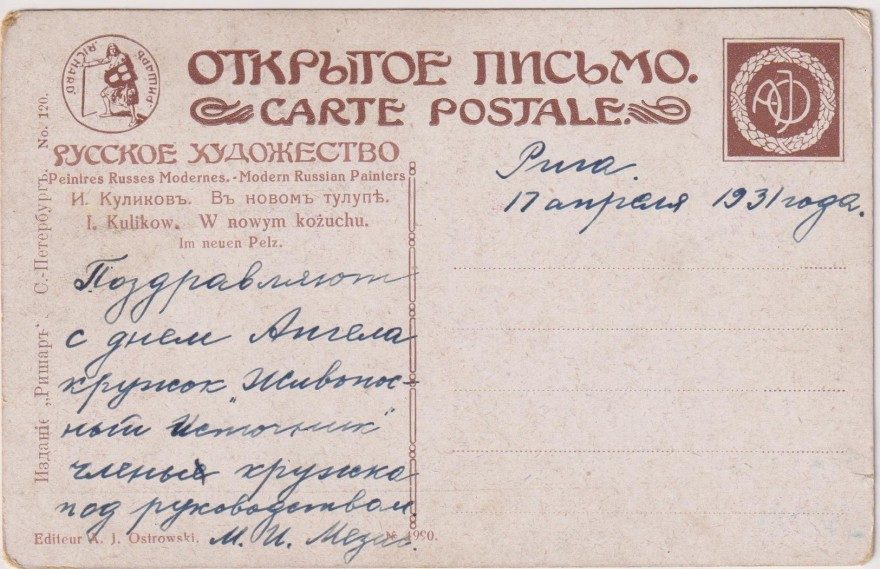 RICHARD РИШАРЪ
ОТКРЫТОЕ ПИСЬМО.
CARTE POSTALE.
РУССКОЕ ХУДОЖЕСТВО
Peintres Russes Modernes.-Modern Russian Painters
И. Куликовъ. Въ новомъ тулупѣ.
I. Kulikow. W nowym kożuchu.
Im neuen Pelz.
Изданіе „Ришаръ“ С.-Петербургъ. No. 120.
Рига.
17 апреля 1931 года.
Поздравляют
с днем Ангела
кружок „Живонос-
ный Источник"
члены кружка
под руководством
М. И.
Editeur A. I. Ostrowski.
№ 4990.